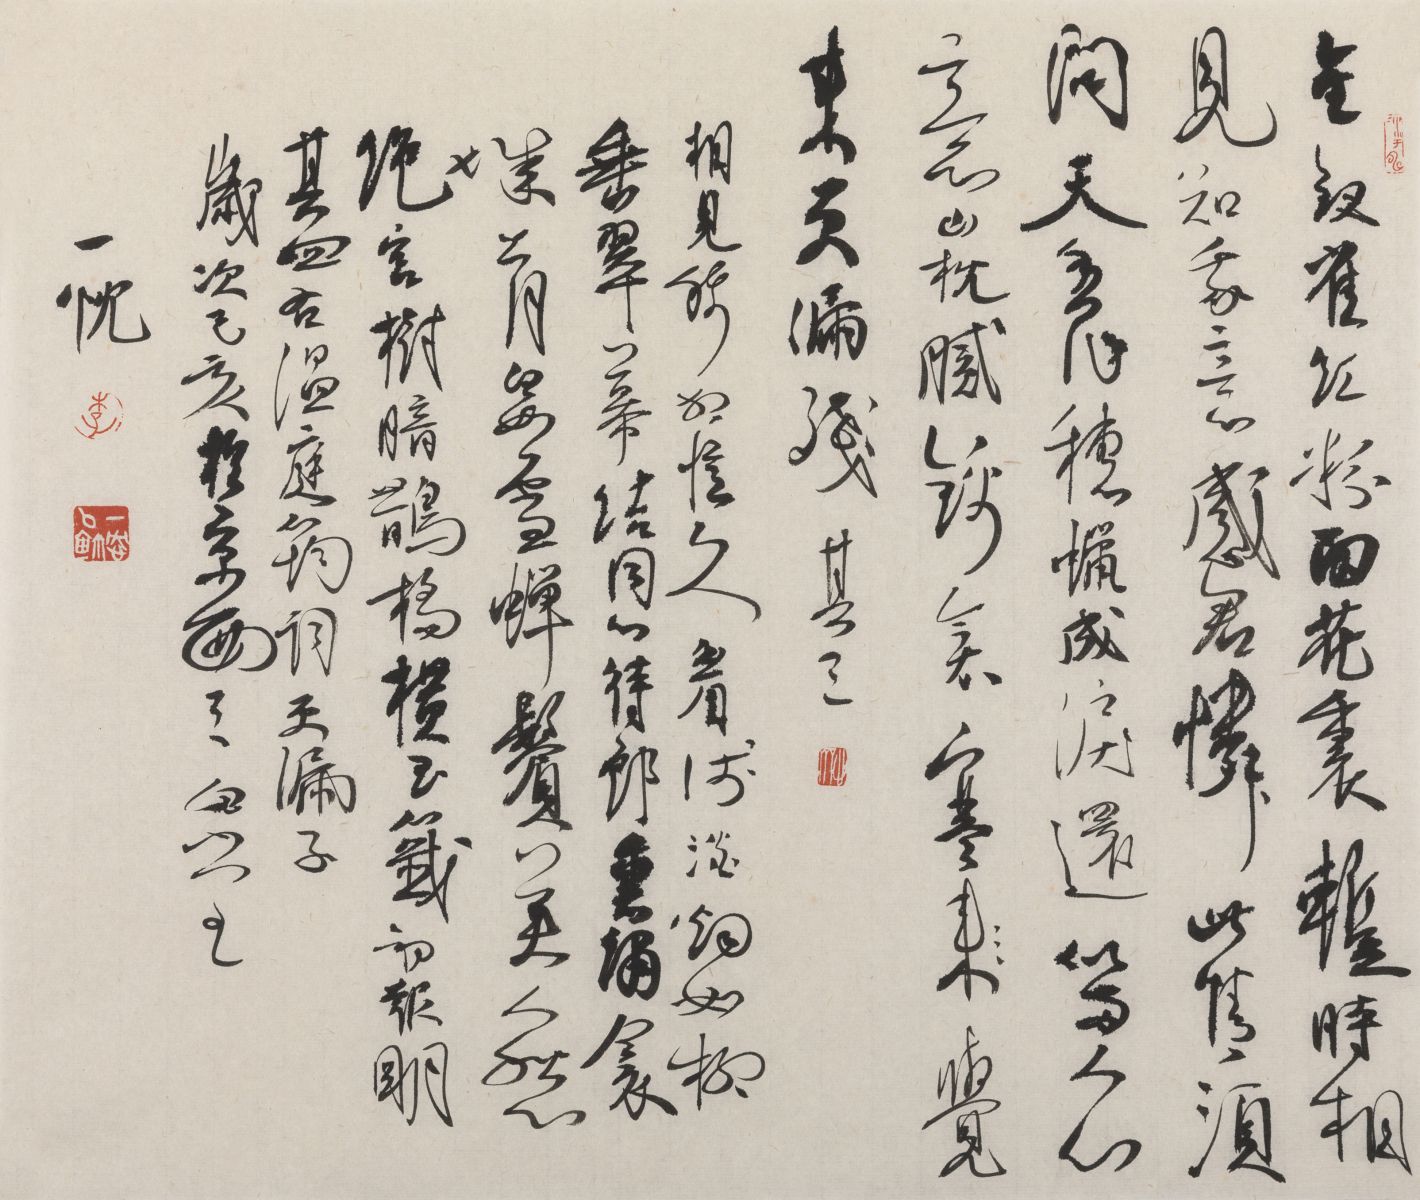 金釵雀红粉面花裏暫時相
見知我意感君憐此情須
問天香作穗蠟成淚還似兩人心
意山枕膩錦衾寒來覺
來更漏殘 其三
相見稀相憶久眉淺淡烟如柳
垂翠幕結同心待郎熏繡衾
城上月白如雪蟬鬢美人愁
絶宫樹暗鵲橋橫玉籤初報明
其四右温庭筠詞更漏子
歲次己亥於京西
一忱
李